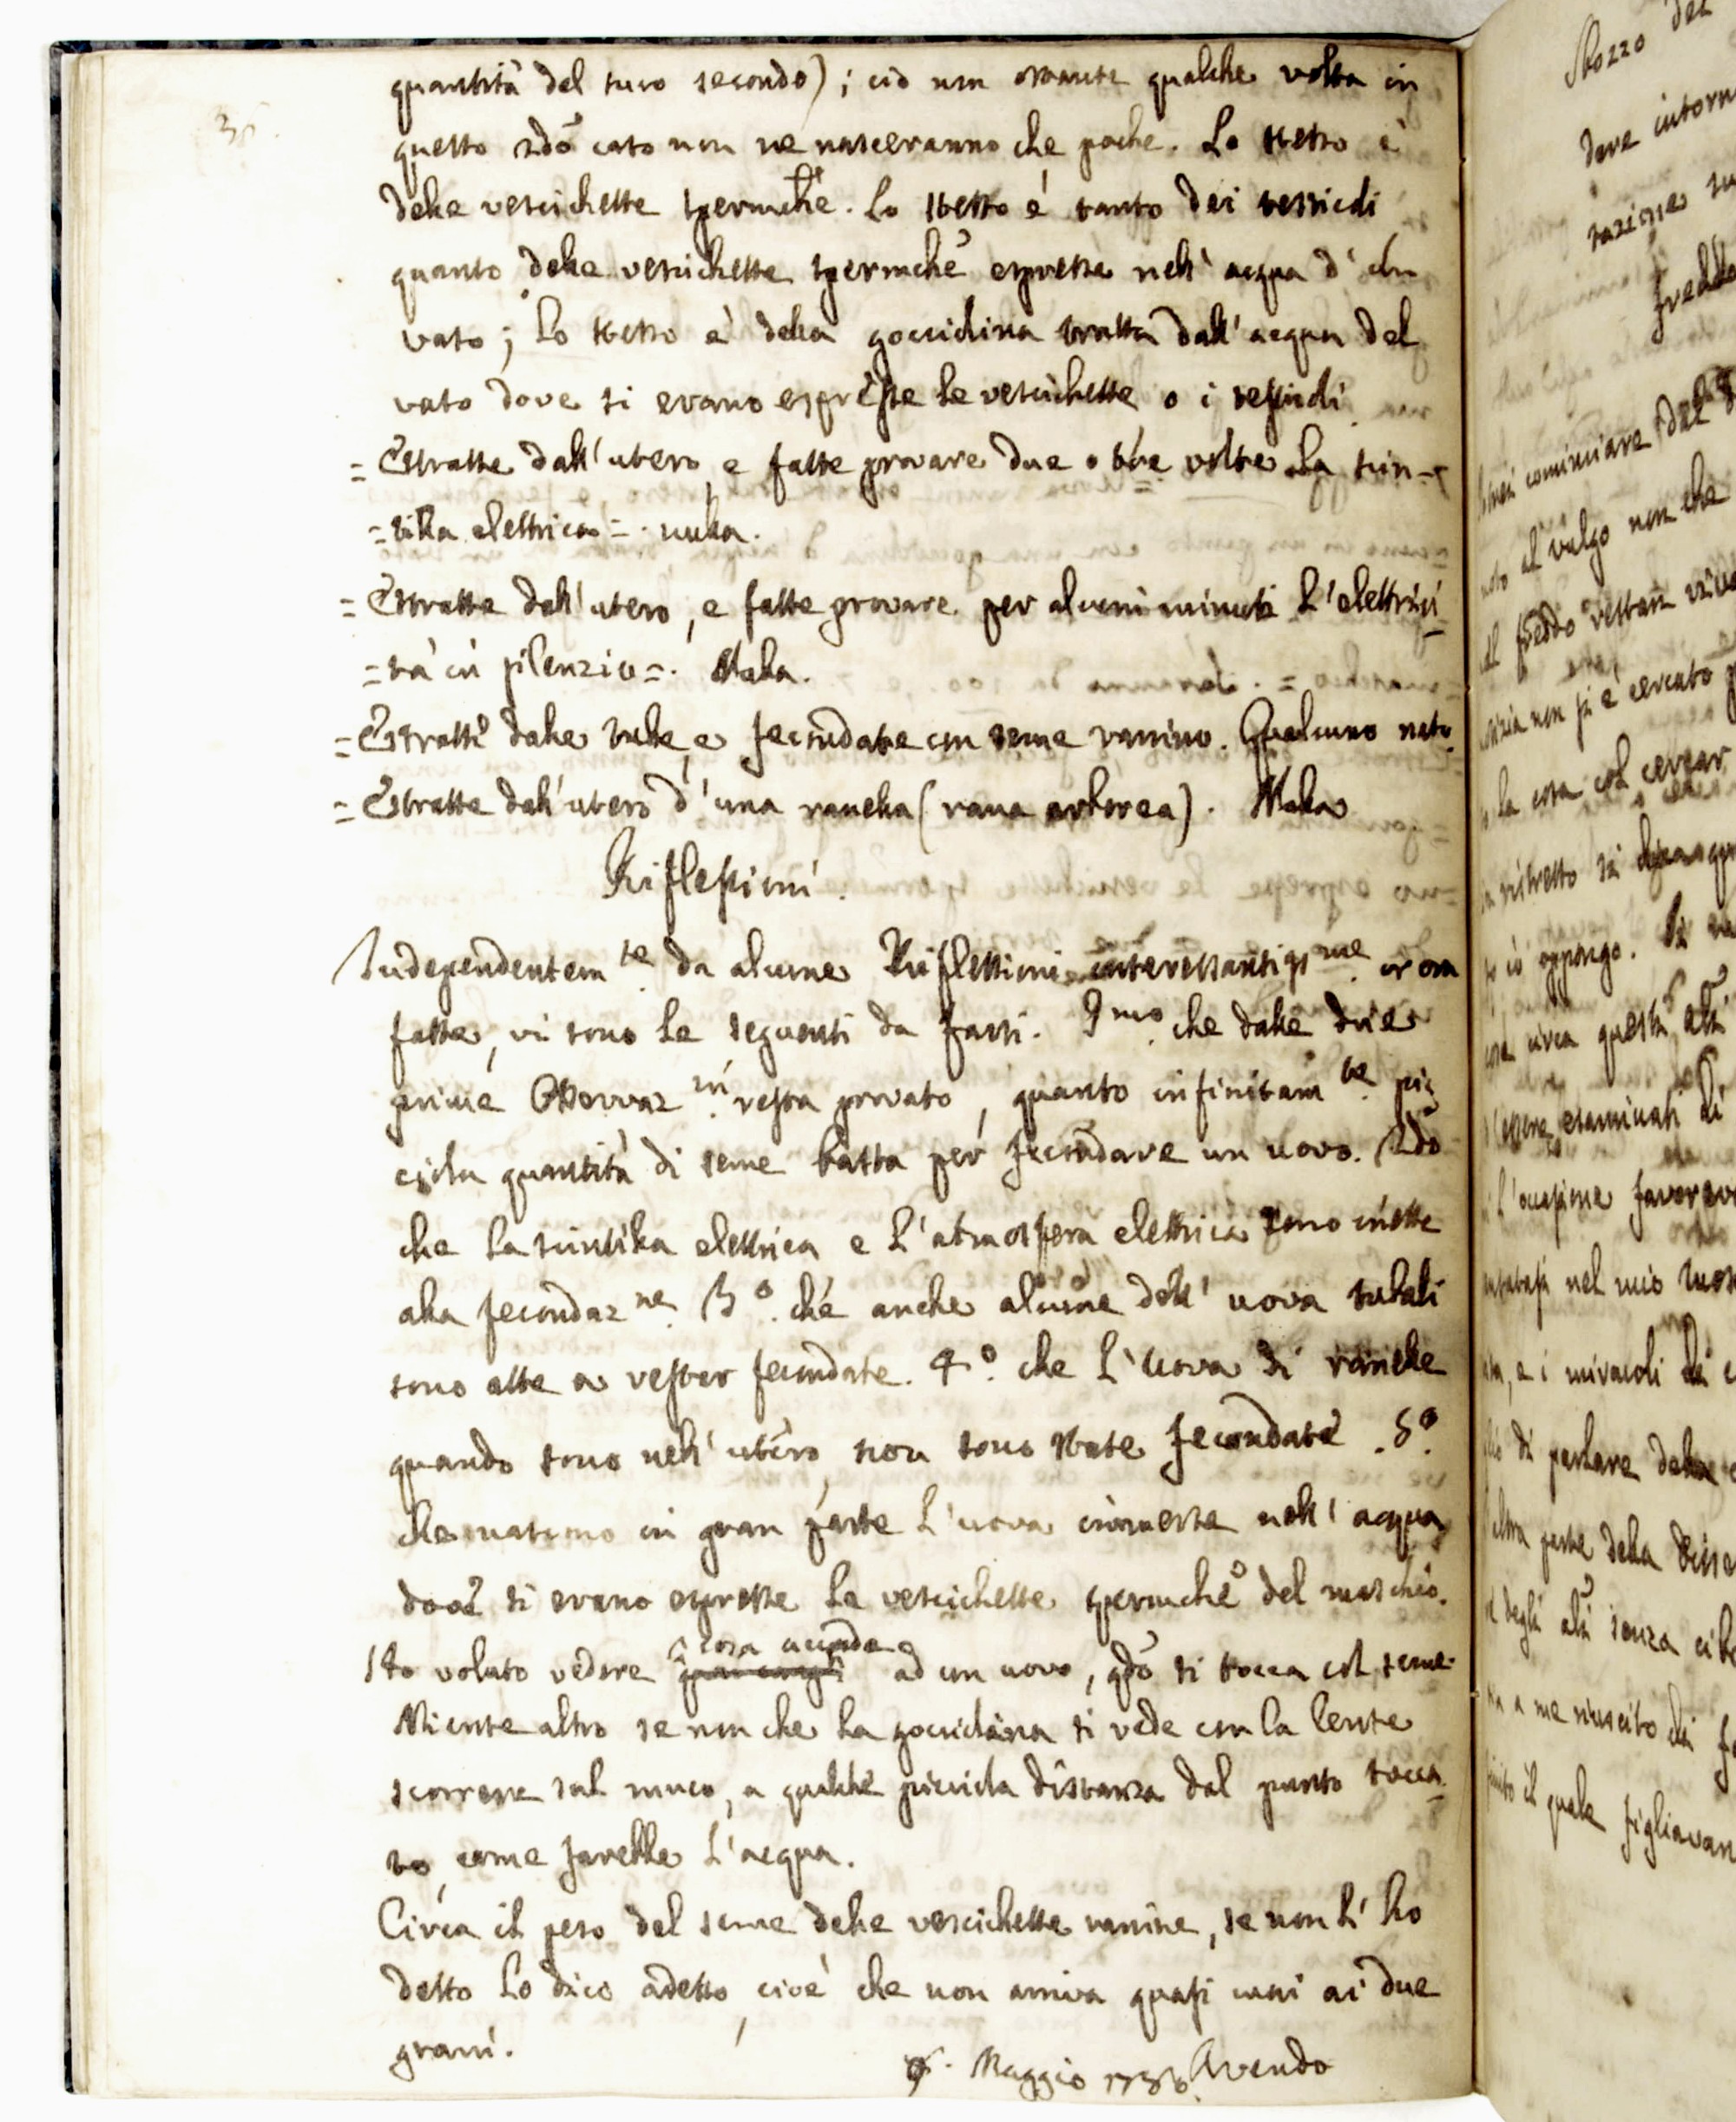 quantità del suco secondo); ciò non ostante qualche volta in
questo 2do caso non ne nasceranno che poche. Lo stesso è
delle vescichette spermche. Lo stesso è tanto dei testicoli
quanto delle vescichette spermche espresse nell' acqua d' un
vaso; Lo stesso è della gocciolina tratta dall' acqua del
vaso dove si erano espresse le vescichette o i testicoli
= Estratte dall' utero, e fatte provare due o tre volte la scin-
= tilla elettrica = . nulla.
= Estratte dall' utero, e fatte provare per alcuni minuti l' elettrici
= tà in silenzio = . Nulla.
= Estratte dalle tube, e fecondate con seme ranino. Qualcuno nato.
= Estratte dall' utero d' una ranella (rana arborea). Nulla
Riflessioni.
Independentemte da alcune Riflessioni interessantissme or ora
fatte, vi sono le seguenti da farsi. Imo che dalle due
prime Osservazni resta provato, quanto infinitamte pic
ciola quantità di seme basta per fecondare un uovo. 2do
che la scintilla elettrica e l' atmosfera elettrica sono inette
alla fecondazne 3o. che anche alcune dell' uova tubali
sono atte a restar fecondate. 4o. che l' uova di ranelle
quando sono nell' utero, non sono state fecondate. 5o.
che nascono in gran parte l' uova immerse nell' acqua
dove si erano espresse le vescichette spermche del maschio.
Ho voluto vedere cosa accada ad un uovo, qdo si tocca col seme.
Niente altro se non che la gocciolina si vede con la lente
scorrere sul muco, a qualche picciola distanza dal punto tocca
to, come farebbe l' acqua.
Circa il peso del seme delle vescichette ranine, se non l' ho
detto lo dico adesso, cioè che non arriva quasi mai ai due
grani.
Maggio Avendo
Sbozzo del
dove intorn
fredd
cominciare dal
al vulgo non che
freddo restan vive
non si è cercato
la cosa col cercar
ristretto si
io oppongo. Si
circa questi alti
esaminati di
l' occasione favorev
nel mio
e i miracoli di
di parlare della
altra parte della
degli alti senza cib
a me riuscito di
il quale figliavan